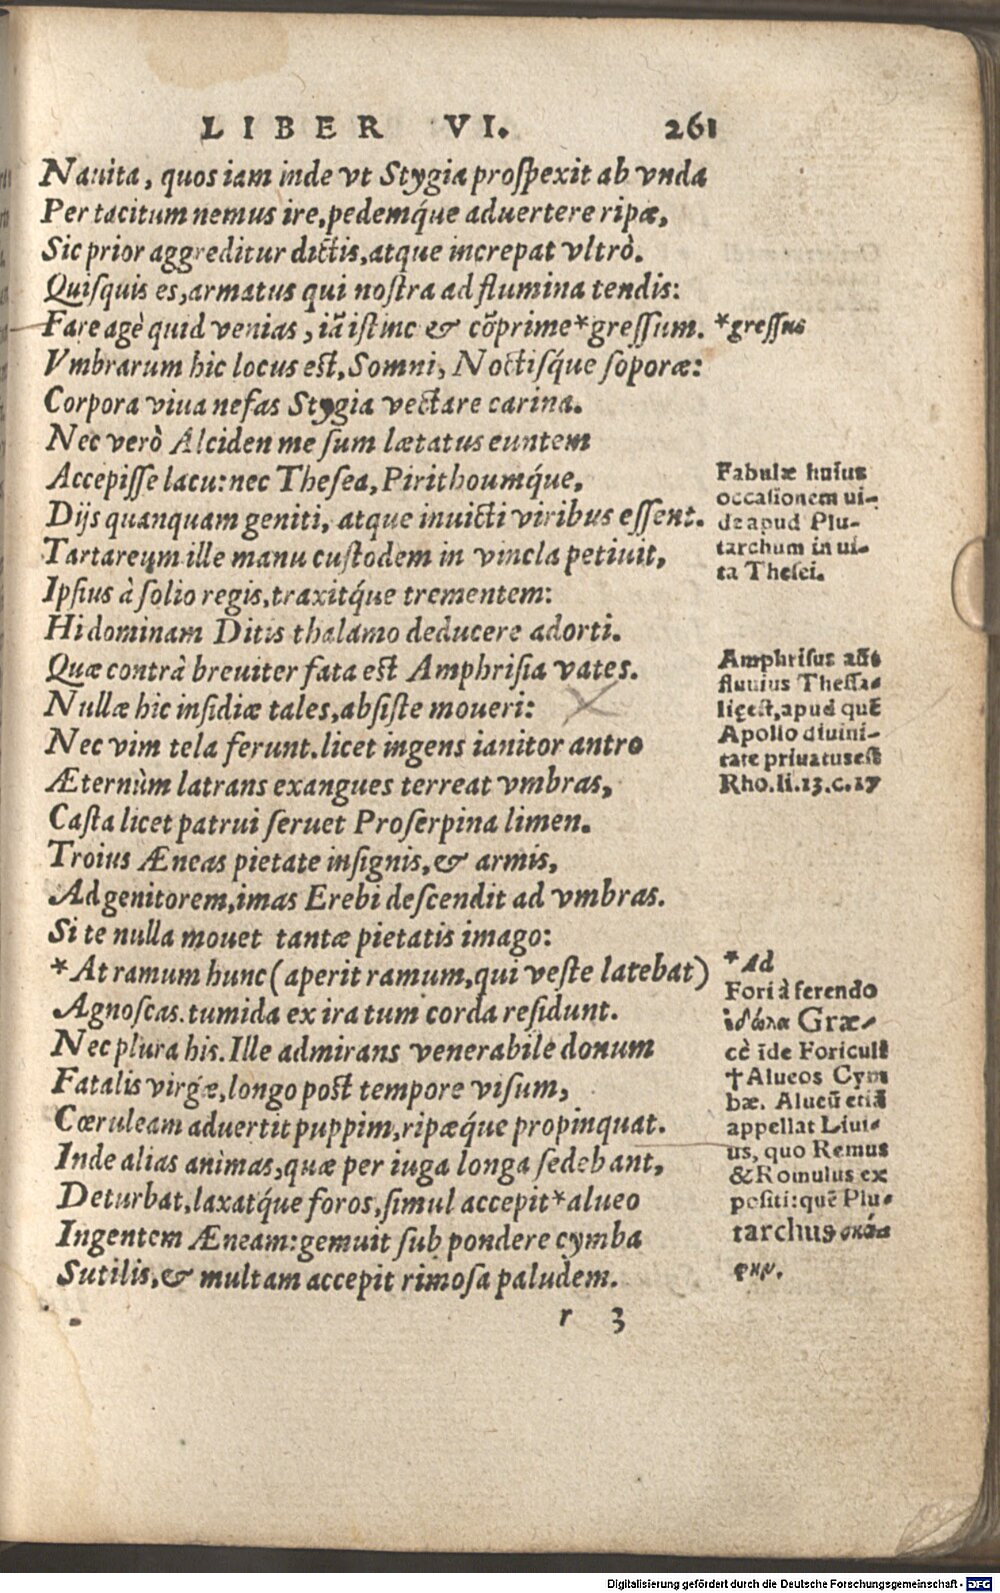 LIBER VI. 261
Nauita, quos iam inde vt Stygia proſpexit ab vnda
Per tacitum nemus ire, pedemq́ue aduertere ripæ,
Sic prior aggreditur dictis, atque increpat vltrò.
Quiſquis es, armatus qui noſtra ad flumina tendis:
Fare agè quid venias, iã iſtinc & cõprime*greſſum.
*greſſus
Vmbrarum hic locus eſt, Somni, Noctiſq́ue ſoporæ:
Corpora viua nefas Stygia vectare carina.
Nec verò Alciden me ſum lætatus euntem
Accepiſſe lacu: nec Theſea, Pirithoumq́ue,
Dijs quanquam geniti, atque inuicti viribus eſſent.
Tartareum ille manu cuſtodem in vincla petiuit,
Ipſius à ſolio regis, traxitq́ue trementem:
Hi dominam Ditis thalamo deducere adorti.
Quæ contrà breuiter fata eſt Amphriſia vates.
Nullæ hic inſidiæ tales, abſiſte moueri:
Nec vim tela ferunt. licet ingens ianitor antro
Æternùm latrans exangues terreat vmbras,
Caſta licet patrui ſeruet Proſerpina limen.
Troius Æneas pietate inſignis, & armis,
Ad genitorem, imas Erebi deſcendit ad vmbras.
Si te nulla mouet tantæ pietatis imago:
*At ramum hunc (aperit ramum, qui veſte latebat)
Agnoſcas. tumida ex ira tum corda reſidunt.
Nec plura his. Ille admirans venerabile donum
Fatalis virgæ, longo poſt tempore viſum,
Cœruleam aduertit puppim, ripæq́ue propinquat.
Inde alias animas, quæ per iuga longa ſedebant,
Deturbat, laxatq́ue foros, ſimul accepit*alueo
Ingentem Æneam: gemuit ſub pondere cymba
Sutilis, & multam accepit rimoſa paludem.
Fabulæ huius
occaſionem ui-
de apud Plu-
tarchum in ui-
ta Theſei.
Amphriſus aũt
fluuius Theſſa-
lię eſt, apud quẽ
Apollo diuini-
tate priuatus eſt
Rho. li. 13. c. 17
*Ad
Fori à ferendo
Græ-
cè ĩde Foriculę
†Alueos Cym
bæ. Alueũ etiã
appellat Liui-
us, quo Remus
& Romulus ex
poſiti: quẽ Plu-
tarchus σκά-
φην.
r 3
Digitalisierung gefördert durch die Deutsche Forschungsgemeinschaft - DFG